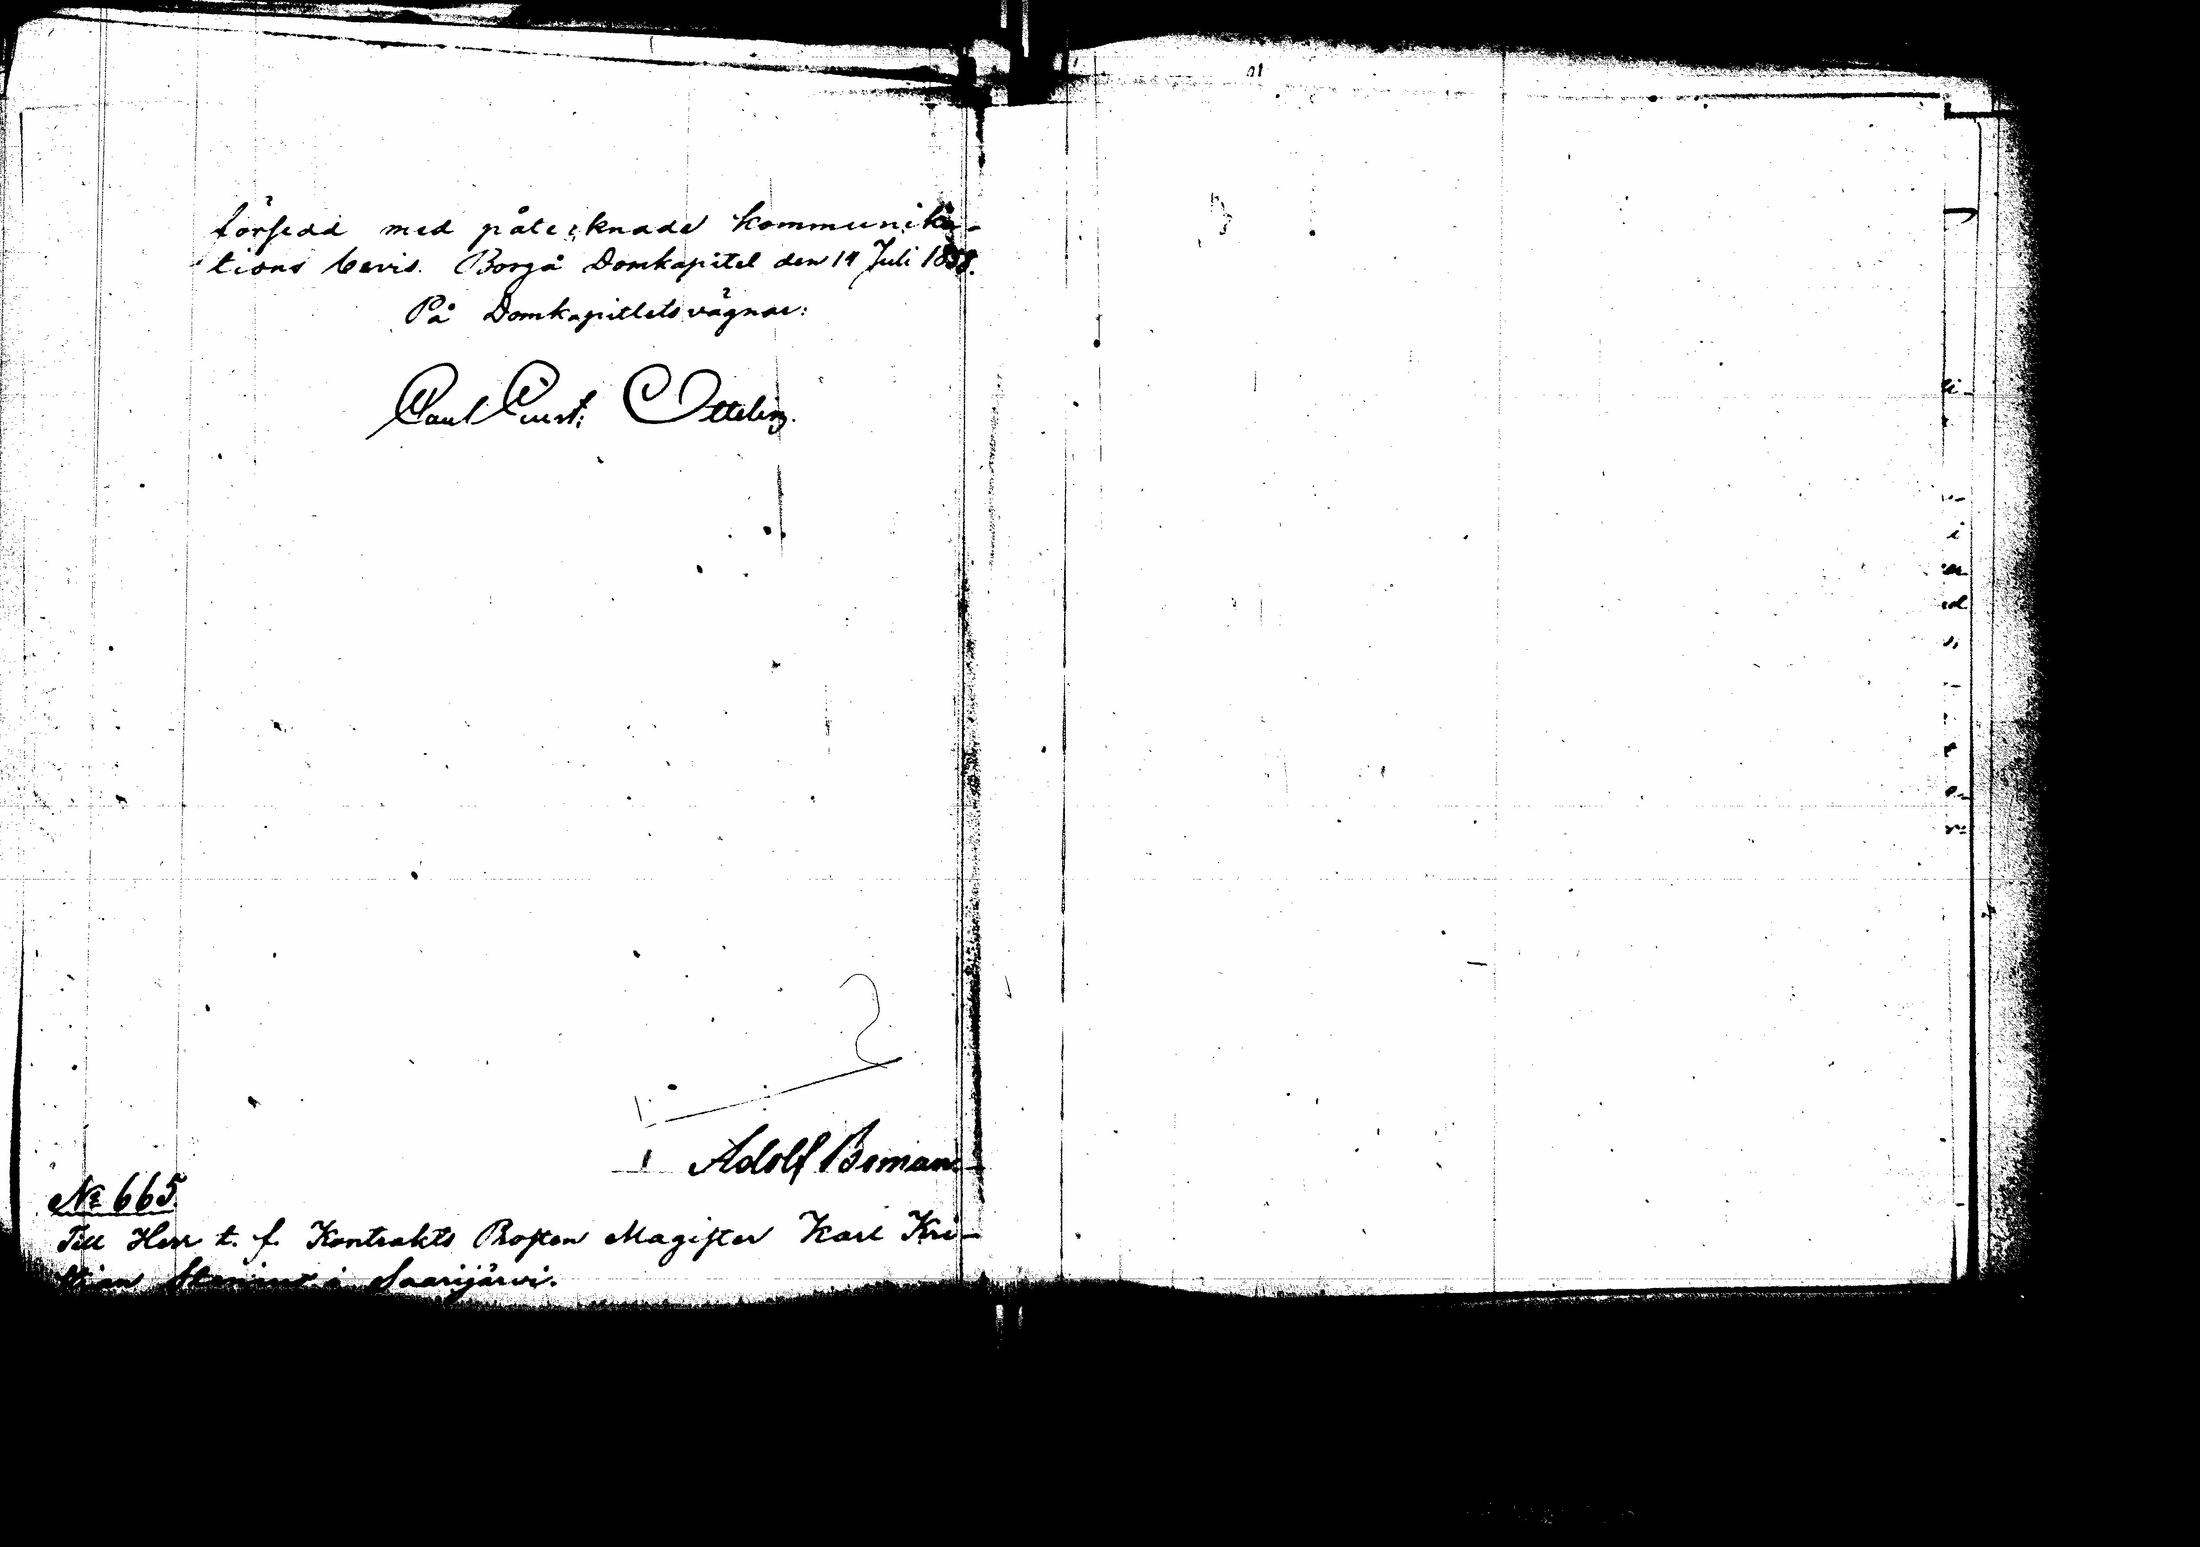 försedd med påtecknade kommunika-
tions bevis. Borgå Domkapitel den 14 Juli 1858.
På Domkapitlets vägnar:
Carl Gust: Ottelin.
Adolf Boman
No 665.
Till Herr t. f. Kontrakts Prosten Magister Karl Kri-
stian Stenius i Saarijärvi.